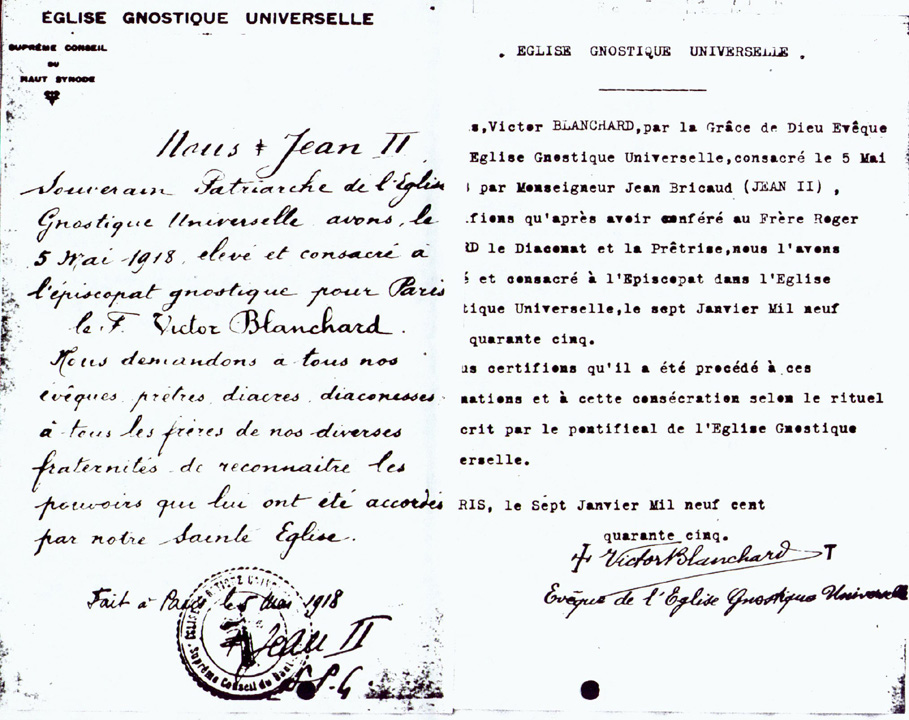 ÉGLISE GNOSTIQUE UNIVERSELLE
SUPRÊME CONSEIL
DU
HAUT SYNODE
Nous ‡ Jean II
Souverain Patriarche de l'Eglise
Gnostique Universelle avons, le
5 Mai 1918, elevé et consacré à
l'épiscopat gnostique pour Paris
le F. Victor Blanchard.
Nous demandons à tous nos
évêques, prêtres, diacres, diaconesses,
à tous les frères de nos diverses
fraternités de reconnaitre les
pouvoirs qui lui ont été accordés
par notre Sainte Eglise.
Fait à Paris, le 5 Mai 1918
Jean II
Suprême Conseil du Haut
. EGLISE GNOSTIQUE UNIVERSELLE .
s,Victor BLANCHARD,par la Grâce de Dieu Evêque
Eglise Gnostique Universelle,consacré le 5 Mai
par Monseigneur Jean Bricaud (JEAN II) ,
fions qu'après avoir conféré au Frère Roger
RD le Diaconat et la Prêtrise,nous l'avons
é et consacré à l'Episcopat dans l'Eglise
tique Universelle,le sept Janvier Mil neuf
quarante cinq.
us certifions qu'il a été procédé à ces
nations et à cette consécration selon le rituel
crit par le pontifical de l'Eglise Gnostique
erselle.
RIS, le Sept Janvier Mil neuf cent
quarante cinq.
‡ Victor Blanchard T
Evêque de l'Eglise Gnostique Universelle